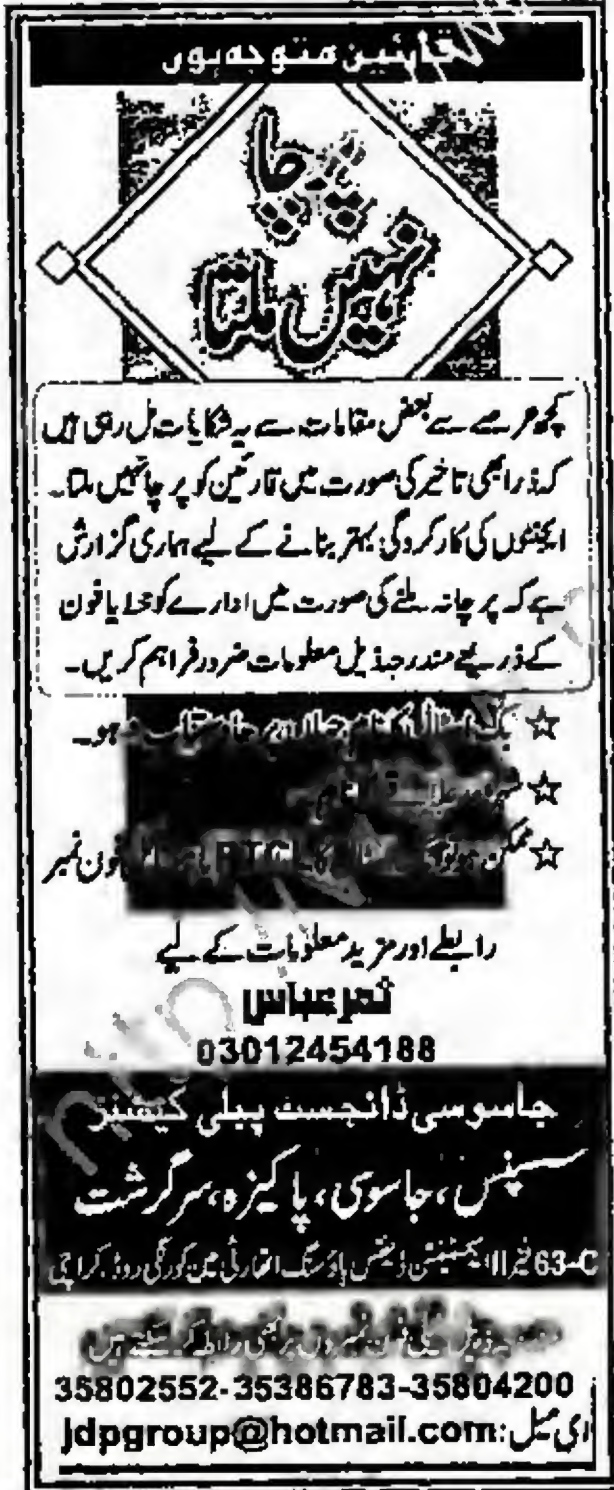 قارئین متوجہ ہوں
پرچا
نہیں ملتا
کچھ عرصے سے بعض مقامات سے یہ شکایات مل رہی ہیں
کہ ذرا بھی تاخیر کی صورت میں قارئین کو پرچا نہیں ملتا۔
ایجنٹوں کی کارکردگی بہتر بنانے کے لیے ہماری گزارش
ہے کہ پرچا نہ ملنے کی صورت میں ادارے کو خط یا فون
کے ذریعے مندرجہ ذیل معلومات ضرور فراہم کریں۔
☆ بک اسٹال کا نام جہاں پرچا دستیاب نہ ہو۔
☆ شہر اور علاقے کا نام۔
☆ ممکن ہو تو PTCL یا فون نمبر
رابطے اور مزید معلومات کے لیے
ثمر عباس
03012454188
جاسوسی ڈائجسٹ پبلی کیشنز
سسپنس، جاسوسی، پاکیزہ، سرگزشت
63-C فیز II ایکسٹینشن ڈیفنس ہاؤسنگ اتھارٹی مین کورنگی روڈ، کراچی
ذیل ٹیلی فون نمبروں پر بھی رابطہ کر سکتے ہیں
35802552-35386783-35804200
ای میل:jdpgroup@hotmail.com